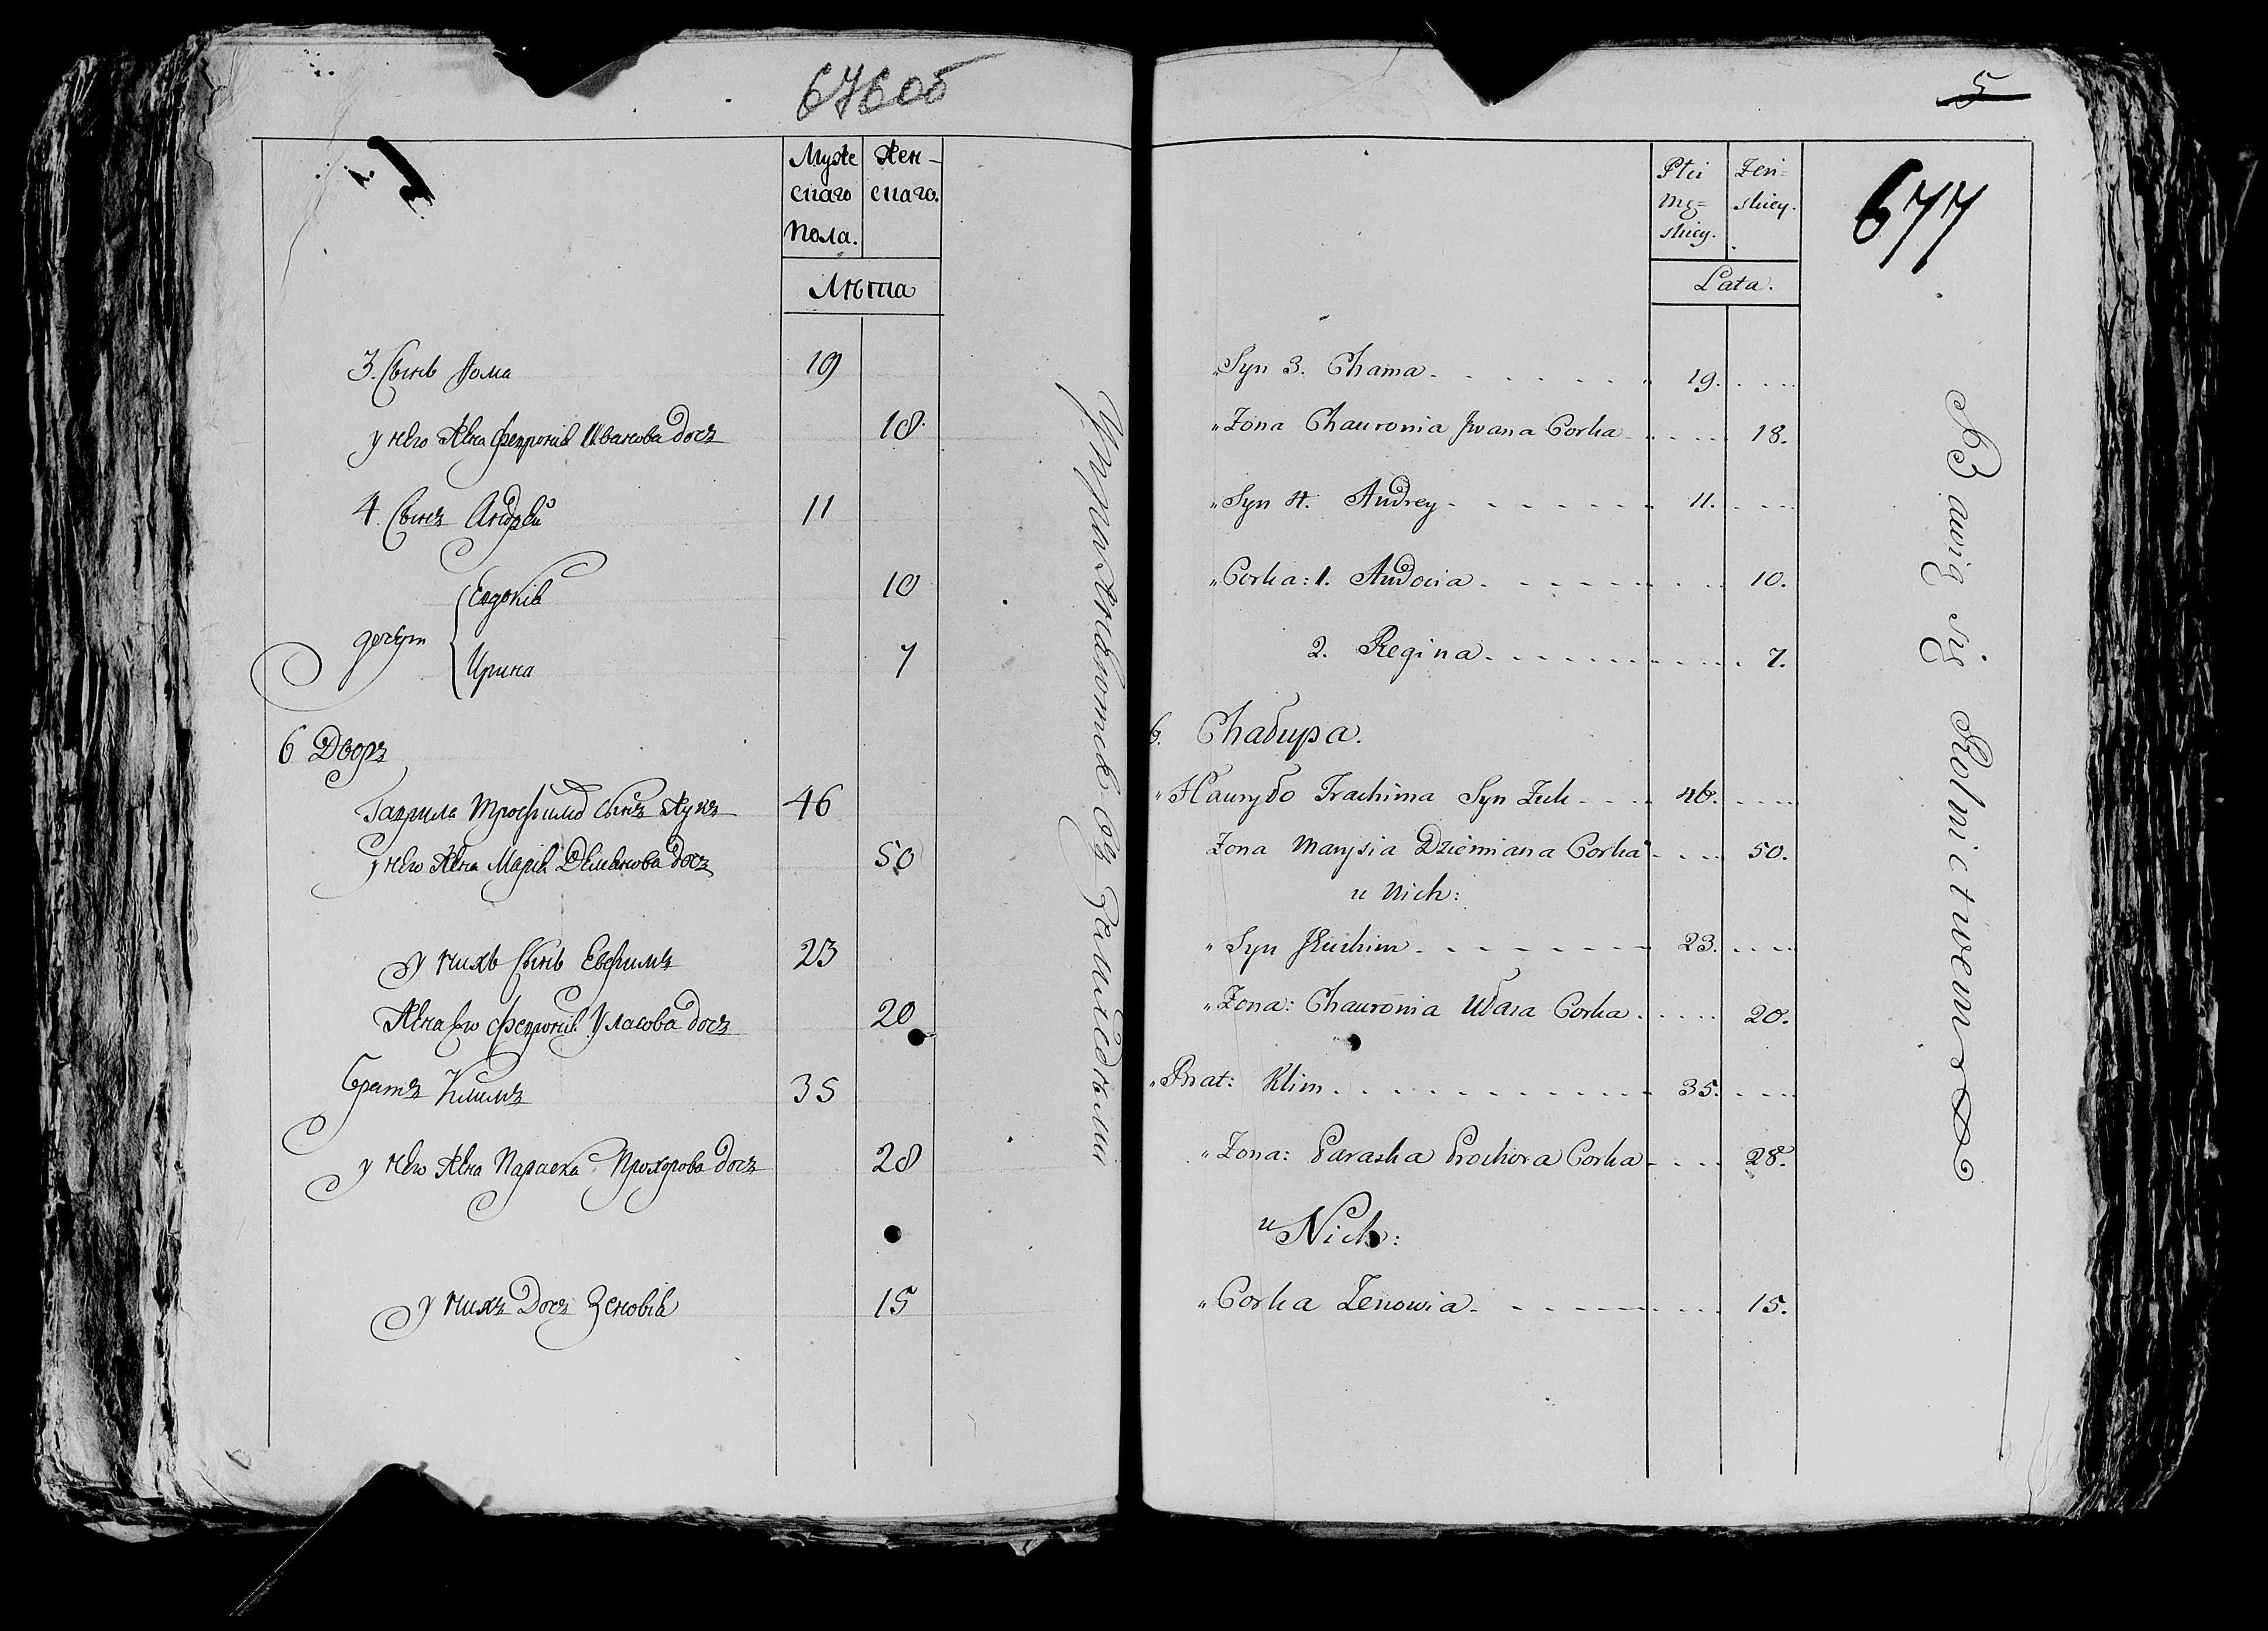 676об
Муже Жен-
скаго скаго.
Пола.
Лѣта
3. Сынъ Хома 19
у него Жена Февронія Иванова дочь 18
4 Сынъ Андрей 11
дочери
Евдокія 10
Ирина 7
6 Дворъ
Гаврила Трофимо Сынъ Жукъ 46
у него Жена Марія Деміянова дочь 50
у нихъ Сынъ Евфимъ 23
Жена его Февронія Уласова дочь 20
братъ Климъ 35
у него Жена Параска Прохорова дочь 28
у нихъ Дочь Зеновія 15
Упражняются въ Земледѣліи
5
677
Płci Żeń=
Mę= skiey.
skiey.
Lata.
Syn 3. Chama 19.
Żona Chauronia Jwana Corka 18.
Syn 4. Andrey 11.
Corka: 1. Audocia 10.
2. Regina 7.
6. Chaбupa.
Hauryło Trachima Syn Żuk 46.
Żona Marysia Dziemiana Corka 50.
u Nich:
Syn Jeuchim 23.
Żona: Chauronia Ułasa Corka 20.
Brat: Klim 35.
Żona: Paraska Prochora Corka 28.
u Nich:
Corka Zenowia 15.
Bawią się Rolnictwem